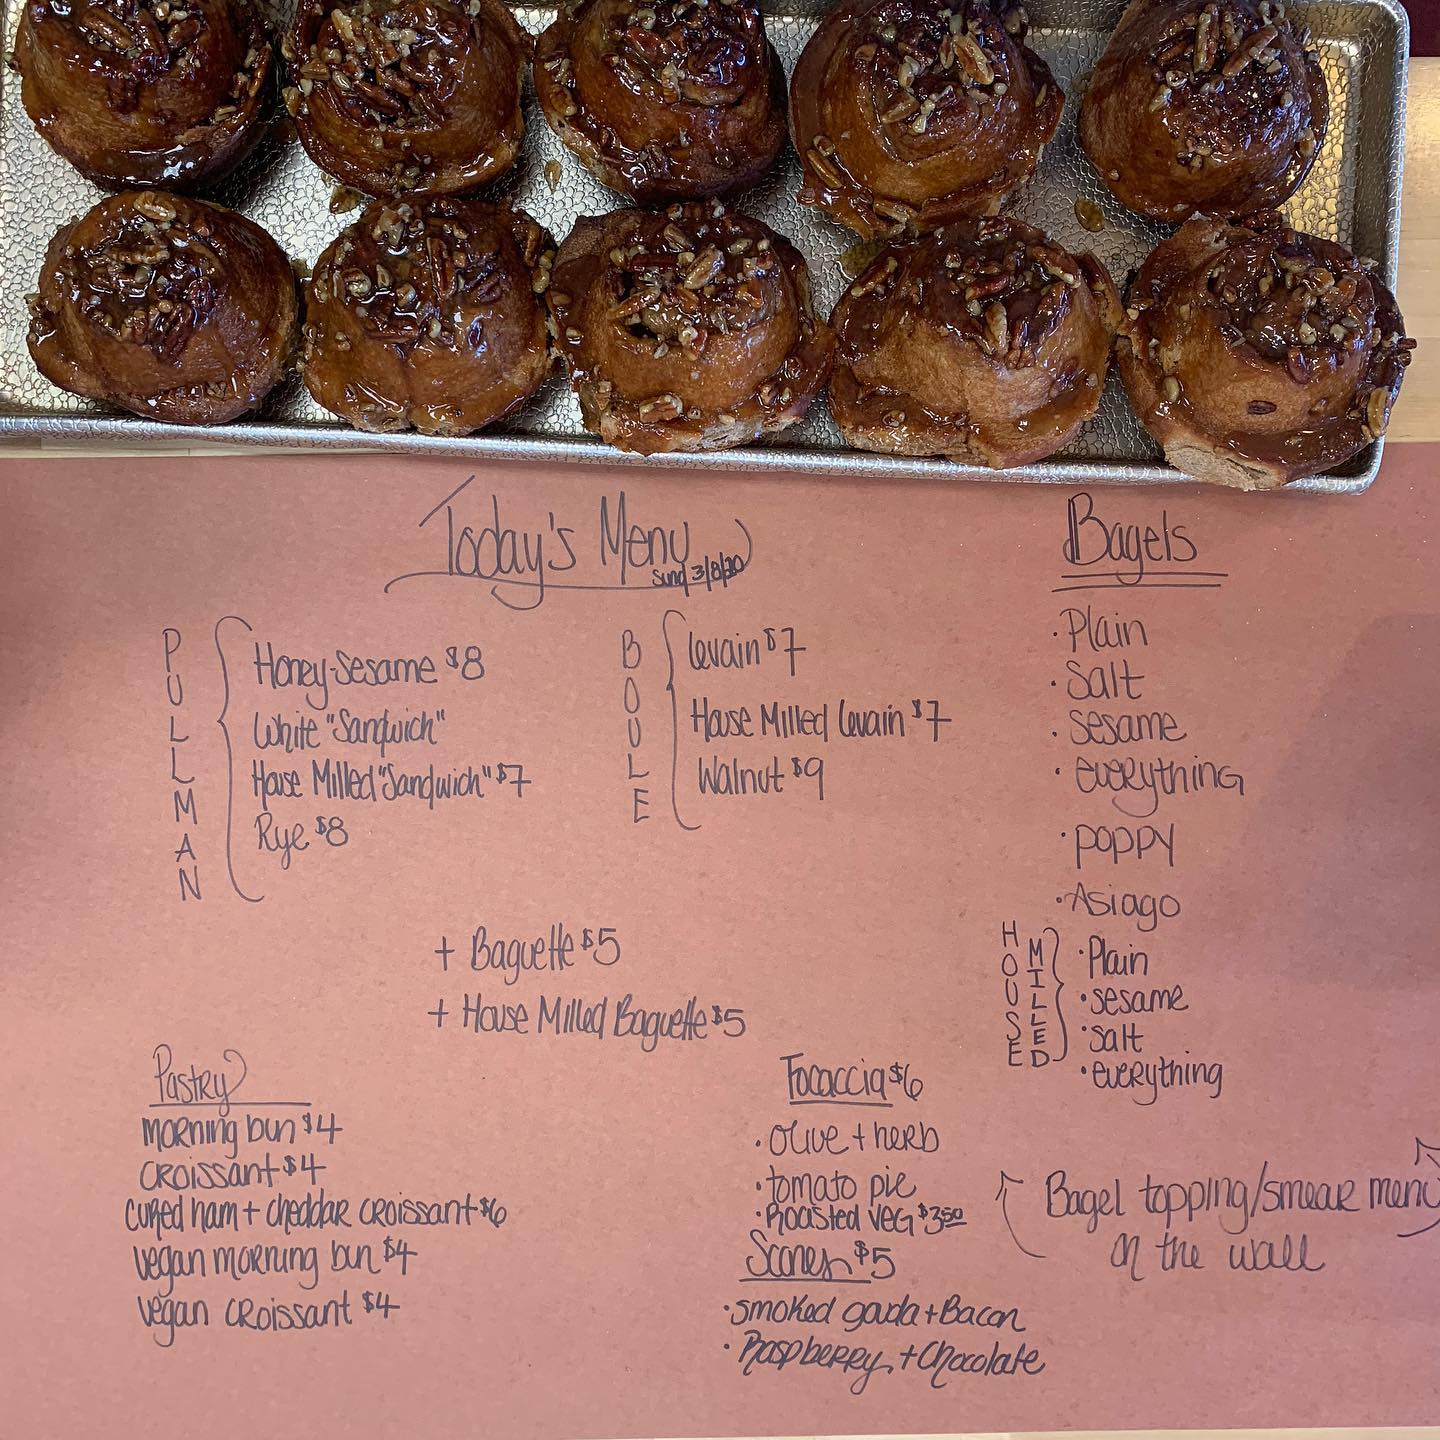 Today's Menu
Sund 3/8/20
PULLMAN
Honey-Sesame $8
White "Sandwich"
House Milled "Sandwich" $7
Rye $8
BOULE
Levain $7
House Milled Levain $7
Walnut $9
+ Baguette $5
+ House Milled Baguette $5
Bagels
• Plain
• Salt
• Sesame
• everything
• Poppy
• Asiago
HOUSE MILLED
• Plain
• sesame
• salt
• everything
Bagel topping/smear menu
on the wall
Pastry
morning bun $4
croissant $4
cured ham + cheddar croissant $6
vegan morning bun $4
vegan croissant $4
Focaccia $6
• olive + herb
• tomato pie
• Roasted veg $3.50
Scones $5
• smoked gouda + Bacon
• Raspberry + Chocolate